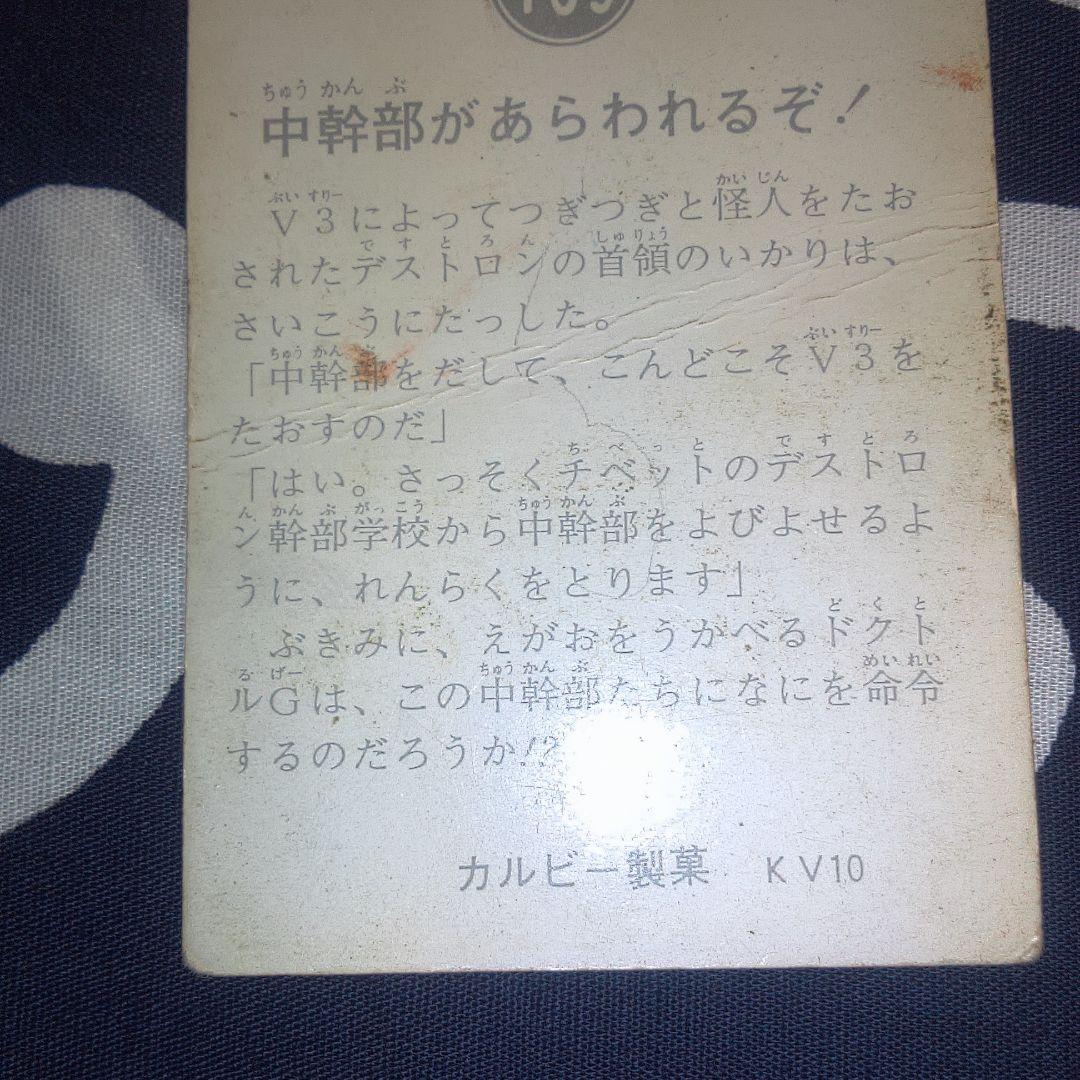 中幹部があらわれるぞ！
V3によってつぎつぎと怪人をたお
されたデストロンの首領のいかりは、
さいこうにたっした。
「中幹部をだして、こんどこそV3を
たおすのだ」
「はい。さっそくチベットのデストロ
ン幹部学校から中幹部をよびよせるよ
うに、れんらくをとります」
ぶきみに、えがおをうかべるドクト
ルGは、この中幹部たちになにを命令
するのだろうか!?
カルビー製菓 KV10